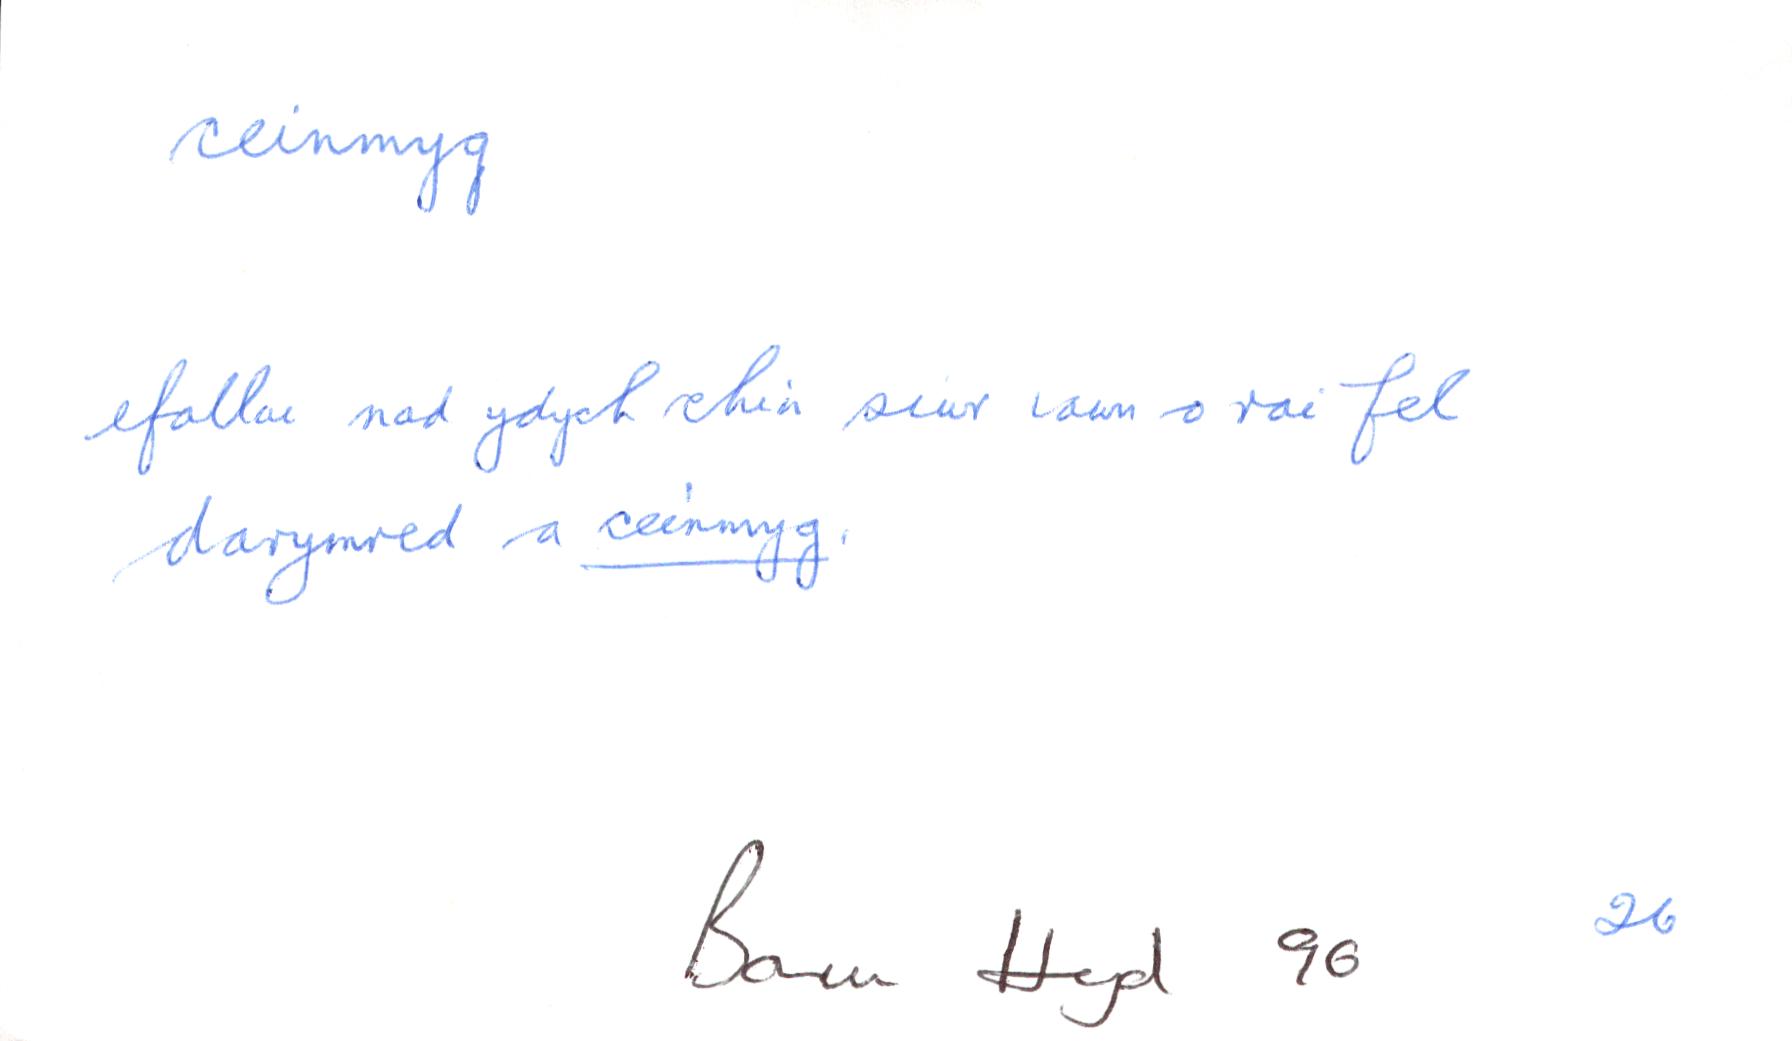 ceinmyg
efallai nad ydych chi'n siwr iawn o rai fel
darymred a ceinmyg.
Barn Hyd 90
26